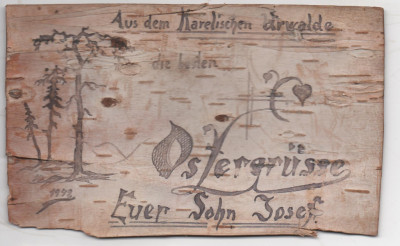 Aus dem Karelischen Urwalde
die
Ostergrüsse
Euer Sohn Josef